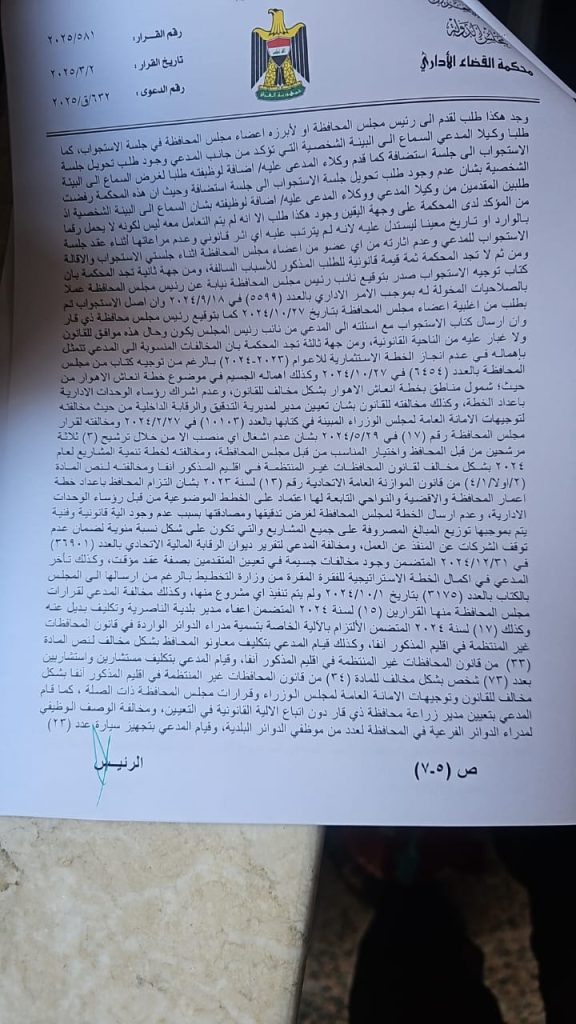 مجلس الدولة
محكمة القضاء الأداري
جمهورية العراق
رقم القـرار: ٢٠٢٥/٥٨١
تاريخ القرار: ٢٠٢٥/٣/٢
رقم الدعوى: ٦٣٢/ق/٢٠٢٥
وجد هكذا طلب لقدم الى رئيس مجلس المحافظة او لأبرزه اعضاء مجلس المحافظة في جلسة الاستجواب، كما
طلبا وكيلا المدعي السماع الى البينة الشخصية التي تؤكد من جانب المدعي وجود طلب تحويل جلسة
الاستجواب الى جلسة استضافة كما قدم وكلاء المدعى عليه/ اضافة لوظيفته طلبا لغرض السماع الى البينة
الشخصية بشان عدم وجود طلب تحويل جلسة الاستجواب الى جلسة استضافة وحيث ان هذه المحكمة رفضت
طلبين المقدمين من وكيلا المدعي ووكلاء المدعى عليه/ اضافة لوظيفته بشان السماع الى البينة الشخصية اذ
من المؤكد لدى المحكمة على وجهة اليقين وجود هكذا طلب الا انه لم يتم التعامل معه ليس لكونه لا يحمل رقما
بالوارد او تاريخ معينا ليستدل عليه لانه لم يترتب عليه اي اثر قانوني وعدم مراعاتها أثناء عقد جلسة
الاستجواب للمدعي وعدم اثارته من اي عضو من اعضاء مجلس المحافظة اثناء جلستي الاستجواب والاقالة
ومن ثم لا تجد المحكمة ثمة قيمة قانونية للطلب المذكور للأسباب السالفة، ومن جهة ثانية تجد المحكمة بان
كتاب توجيه الاستجواب صدر بتوقيع نائب رئيس مجلس المحافظة نيابة عن رئيس مجلس المحافظة عملا
بالصلاحيات المخولة له بموجب الأمر الاداري بالعدد (٥٥٩٩) في ٢٠٢٤/٩/١٨ وان اصل الاستجواب تم
بطلب من اغلبية اعضاء مجلس المحافظة بتاريخ ٢٠٢٤/١٠/٢٧ كما بتوقيع رئيس مجلس محافظة ذي قار
وان ارسال كتاب الاستجواب مع اسئلته الى المدعي من نائب رئيس المجلس يكون وحال هذه موافق للقانون
ولا غبار عليه من الناحية القانونية، ومن جهة ثالثة تجد المحكمة بان المخالفات المنسوبة الى المدعي تتمثل
بإهماله في عدم انجاز الخطة الاستثمارية للاعوام (٢٠٢٣-٢٠٢٤) بالرغم من توجيه كتاب من مجلس
المحافظة بالعدد (٦٤٥٤) في ٢٠٢٤/١٠/٢٧ وكذلك اهماله الجسيم في موضوع خطة انعاش الاهوار من
حيث؛ شمول مناطق بخطة انعاش الاهوار بشكل مخالف للقانون، وعدم اشراك رؤساء الوحدات الادارية
باعداد الخطة، وكذلك مخالفته للقانون بشان تعيين مدير لمديرية التدقيق والرقابة الداخلية من حيث مخالفته
لتوجيهات الامانة العامة لمجلس الوزراء المبينة في كتابها بالعدد (١٠١٠٣) في ٢٠٢٤/٢/٢٧ ومخالفته لقرار
مجلس المحافظة رقم (١٧) في ٢٠٢٤/٥/٢٩ بشان عدم اشغال اي منصب الا من خلال ترشيح (٣) ثلاثة
مرشحين من قبل المحافظ واختيار المناسب من قبل مجلس المحافظة، ومخالفته لخطة تنمية المشاريع لعام
٢٠٢٤ بشكل مخالف لقانون المحافظات غير المنتظمة في اقليم المذكور آنفا ومخالفته لنص المادة
(٢/اولا/٤/١) من قانون الموازنة العامة الاتحادية رقم (١٣) لسنة ٢٠٢٣ بشان التزام المحافظ باعداد خطة
اعمار المحافظة والاقضية والنواحي التابعة لها اعتماد على الخطط الموضوعية من قبل رؤساء الوحدات
الادارية، وعدم ارسال الخطة لمجلس المحافظة لغرض تدقيقها ومصادقتها بسبب عدم وجود الية قانونية وفنية
يتم بموجبها توزيع المبالغ المصروفة على جميع المشاريع والتي تكون على شكل نسبة مئوية لضمان عدم
توقف الشركات عن المنفذ عن العمل، ومخالفة المدعي لتقرير ديوان الرقابة المالية الاتحادي بالعدد (٣٦٩٠١)
في ٢٠٢٤/١٢/٣١ المتضمن وجود مخالفات جسيمة في تعيين المتقدمين بصفة عقد مؤقت، وكذلك تأخر
المدعي في اكمال الخطة الاستراتيجية للفقرة المقرة من وزارة التخطيط بالرغم من ارسالها الى المجلس
بالكتاب بالعدد (٣١٧٥) بتاريخ ٢٠٢٤/١٠/١ ولم يتم تنفيذ اي مشروع منها، وكذلك مخالفة المدعي لقرارات
مجلس المحافظة منها القرارين (١٥) لسنة ٢٠٢٤ المتضمن اعفاء مدير بلدية الناصرية وتكليف بديل عنه
وكذلك (١٧) لسنة ٢٠٢٤ المتضمن الألتزام بالألية الخاصة بتسمية مدراء الدوائر الواردة في قانون المحافظات
غير المنتظمة في اقليم المذكور آنفا، وكذلك قيام المدعي بتكليف معاونو المحافظ بشكل مخالف لنص المادة
(٣٣) من قانون المحافظات غير المنتظمة في اقليم المذكور آنفا، وقيام المدعي بتكليف مستشارين واستشاريين
بعدد (٧٣) شخص بشكل مخالف للمادة (٣٤) من قانون المحافظات غير المنتظمة في اقليم المذكور آنفا بشكل
مخالف للقانون وتوجيهات الامانة العامة لمجلس الوزراء وقرارات مجلس المحافظة ذات الصلة، كما قام
المدعي بتعيين مدير زراعة محافظة ذي قار دون اتباع الالية القانونية في التعيين، ومخالفة الوصف الوظيفي
لمدراء الدوائر الفرعية في المحافظة لعدد من موظفي الدوائر البلدية، وقيام المدعي بتجهيز سيارة عدد (٢٣)
الرئيـس
ص (٥-٧)